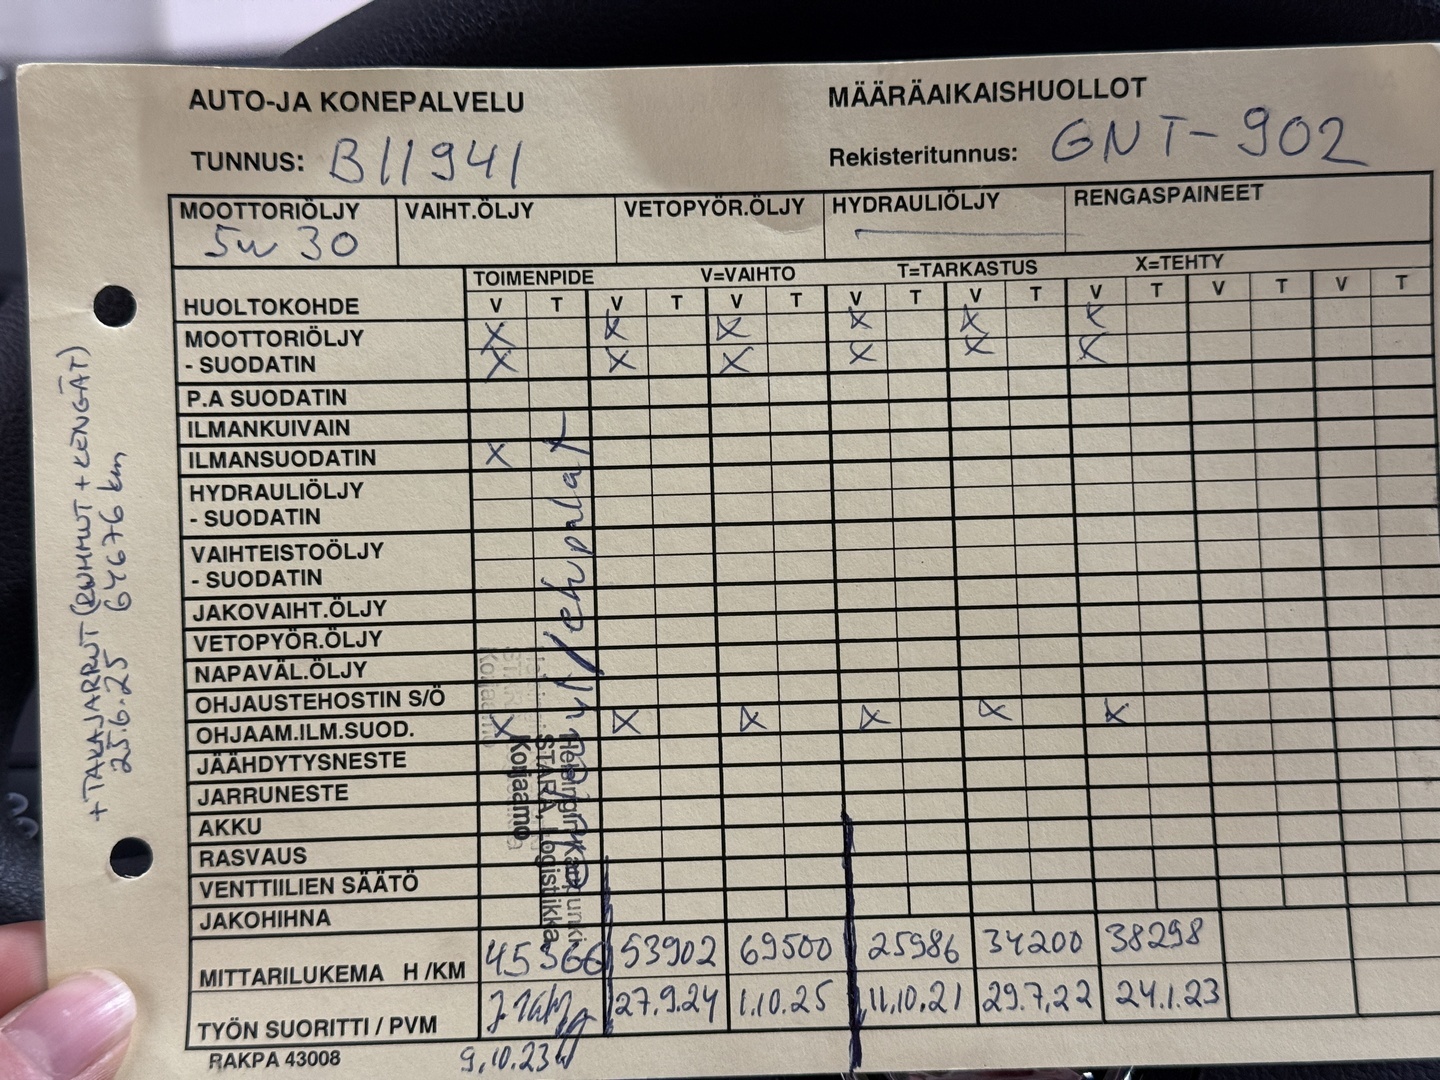 AUTO-JA KONEPALVELU
MÄÄRÄAIKAISHUOLLOT
TUNNUS: B11941
Rekisteritunnus: GNT-902
MOOTTORIÖLJY VAIHT.ÖLJY VETOPYÖR.ÖLJY HYDRAULIÖLJY RENGASPAINEET
5W 30
TOIMENPIDE V=VAIHTO T=TARKASTUS X=TEHTY
HUOLTOKOHDE V T V T V T V T V T V T V T V T
MOOTTORIÖLJY X X X X X X
- SUODATIN X X X X X X
P.A SUODATIN
ILMANKUIVAIN
ILMANSUODATIN X
HYDRAULIÖLJY
- SUODATIN
VAIHTEISTOÖLJY
- SUODATIN
JAKOVAIHT.ÖLJY
VETOPYÖR.ÖLJY
NAPAVÄL.ÖLJY
OHJAUSTEHOSTIN S/Ö
OHJAAM.ILM.SUOD. X X X X X X
JÄÄHDYTYSNESTE
JARRUNESTE
AKKU
RASVAUS
VENTTIILIEN SÄÄTÖ
JAKOHIHNA
MITTARILUKEMA H /KM 45366 53902 69500 25986 34200 38298
TYÖN SUORITTI / PVM 27.9.24 1.10.25 11.10.21 29.7.22 24.1.23
9.10.23
RAKPA 43008
+ TAKAJARRUT (RUMMUT + KENGÄT)
25.6.25 64676 km
/ pyyhkpalat
Helsingin kaupunki
STARA, Logistiikka
Korjaamo